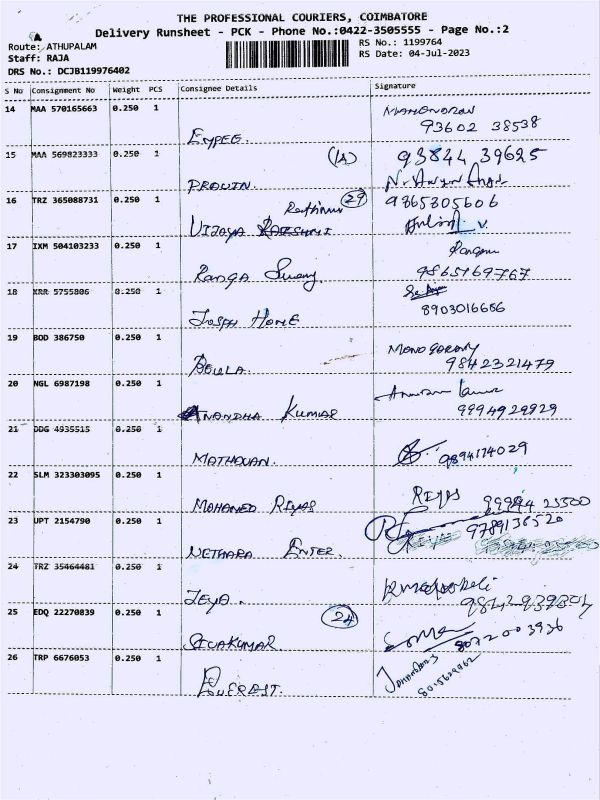 THE PROFESSIONAL COURIERS, COIMBATORE
Delivery Runsheet - PCK - Phone No.:0422-3505555 - Page No.:2
Route: ATHUPALAM
RS No.: 1199764
Staff: RAJA
RS Date: 04-Jul-2023
DRS No.: DCJB119976402
S No Consignment No Weight PCS Consignee Details Signature
14 MAA 570165663 0.250 1
93602 38538
EMPEE.
15 MAA 569823333 0.250 1 (1A) 93844 39625
PRAVIN.
16 TRZ 365088731 0.250 1 29 9865305606
VIJAYA
17 IXM 504103233 0.250 1
RANGA Swamy 9865769767
18 XRR 5755806 0.250 1
JOSPH HOME 8903016686
19 BOD 386750 0.250 1
BEULA. 9842321479
20 NGL 6987198 0.250 1
ANANDHA KUMAR 9994929929
21 DDG 4935515 0.250 1
MATHAVAN. 9894174029
22 SLM 323303095 0.250 1
MOHAMED RIYAS RIYAS 99994 25500
23 UPT 2154790 0.250 1 9789136520
NETHARA ENTER.
24 TRZ 35464481 0.250 1
JEYA.
25 EDQ 22270839 0.250 1 24
SIVAKUMAR 8072003936
26 TRP 6676053 0.250 1
EVEREST.